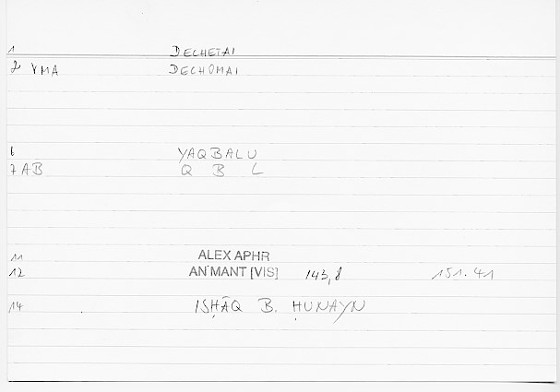 1 DECHETAI
2 VMA DECHOMAI
6 YAQBALU
7 AB Q B L
11 ALEX APHR
12 AN'MANT [VIS] 143,8 151.41
14 ISḤĀQ B. ḤUNAYN